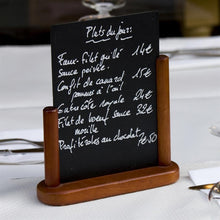 Plats du jour:
Faux-filet grillé 14€
sauce poivre.
Confit de canard 15€
pommes à l'ail
Entrecôte royale 24€
Filet de boeuf sauce 32€
morille
Profiteroles au chocolat
7€50